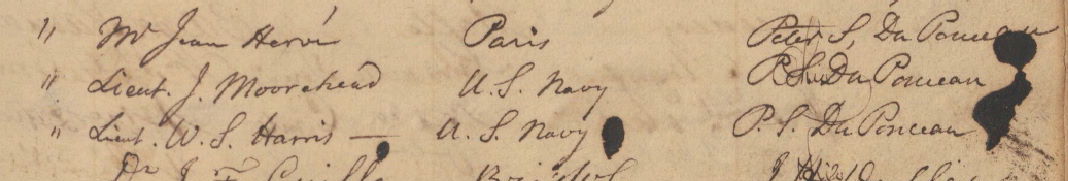 " Mr Jean Hervé Paris Peter S, Du Ponceau
" Lieut. J. Moorehead U. S. Navy P. S. Du Ponceau
" Lieut. W. S. Harris — U. S. Navy P. S. Du Ponceau
Dr J. F.